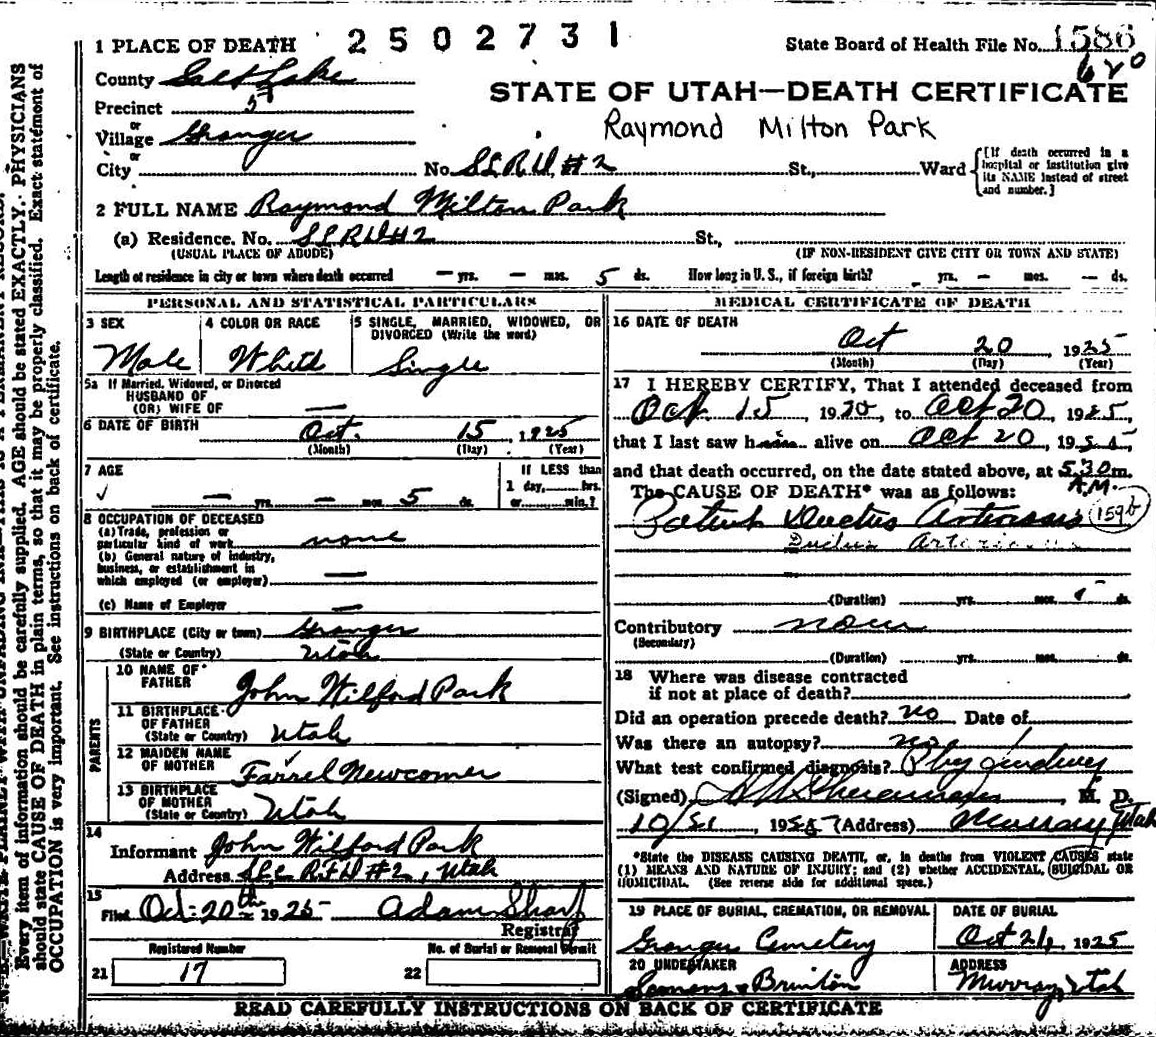 2502731
1 PLACE OF DEATH
State Board of Health File No. 1586
County Salt Lake
620
Precinct 5th
STATE OF UTAH—DEATH CERTIFICATE
or
Village Granger
Raymond Milton Park
or
City No. St., Ward
[If death occurred in a hospital or institution give its NAME instead of street and number.]
2 FULL NAME Raymond Milton Park
(a) Residence. No. St.,
(USUAL PLACE OF ABODE) (IF NON-RESIDENT GIVE CITY OR TOWN AND STATE)
Length of residence in city or town where death occurred — yrs. — mos. 5 ds. How long in U. S., if foreign birth? yrs. — mos. — ds.
PERSONAL AND STATISTICAL PARTICULARS
3 SEX
Male
4 COLOR OR RACE
White
5 SINGLE, MARRIED, WIDOWED, OR
DIVORCED (Write the word)
Single
5a If Married, Widowed, or Divorced
HUSBAND OF
(OR) WIFE OF —
6 DATE OF BIRTH Oct. 15, 1925
(Month) (Day) (Year)
7 AGE
— yrs. — mos. 5 ds.
If LESS than
1 day, hrs.
or min.?
8 OCCUPATION OF DECEASED
(a) Trade, profession or
particular kind of work none
(b) General nature of industry,
business, or establishment in
which employed (or employer) —
(c) Name of Employer —
9 BIRTHPLACE (City or town) Granger
(State or Country) Utah
PARENTS
10 NAME OF
FATHER John Wilford Park
11 BIRTHPLACE
OF FATHER
(State or Country) Utah
12 MAIDEN NAME
OF MOTHER Farrel Newcomer
13 BIRTHPLACE
OF MOTHER
(State or Country) Utah
14
Informant John Wilford Park
Address RFD #2, Utah
15
Filed Oct. 20th 1925 Adam Sharp
Registrar
Registered Number
21 17
No. of Burial or Removal Permit
22
MEDICAL CERTIFICATE OF DEATH
16 DATE OF DEATH
Oct 20, 1925
(Month) (Day) (Year)
17 I HEREBY CERTIFY, That I attended deceased from
Oct. 15, 19 , to Oct 20, 1925,
that I last saw him alive on Oct 20, 19
and that death occurred, on the date stated above, at 5:30 m.
A.M.
The CAUSE OF DEATH* was as follows:
Ductus 159b
Ductus
(Duration) yrs. mos. ds.
Contributory none
(Secondary)
(Duration) yrs. mos. ds.
18 Where was disease contracted
if not at place of death?
Did an operation precede death? no Date of
Was there an autopsy? no
What test confirmed diagnosis?
(Signed) M. D.
10/21 19 (Address) Murray, Utah
*State the DISEASE CAUSING DEATH, or, in deaths from VIOLENT CAUSES state
(1) MEANS AND NATURE OF INJURY; and (2) whether ACCIDENTAL, SUICIDAL OR
HOMICIDAL. (See reverse side for additional space.)
19 PLACE OF BURIAL, CREMATION, OR REMOVAL
Granger Cemetery
DATE OF BURIAL
Oct 21, 1925
20 UNDERTAKER
Brinton
ADDRESS
Murray, Utah
READ CAREFULLY INSTRUCTIONS ON BACK OF CERTIFICATE
Every item of information should be carefully supplied. AGE should be stated EXACTLY. PHYSICIANS
should state CAUSE OF DEATH in plain terms, so that it may be properly classified. Exact statement of
OCCUPATION is very important. See instructions on back of certificate.